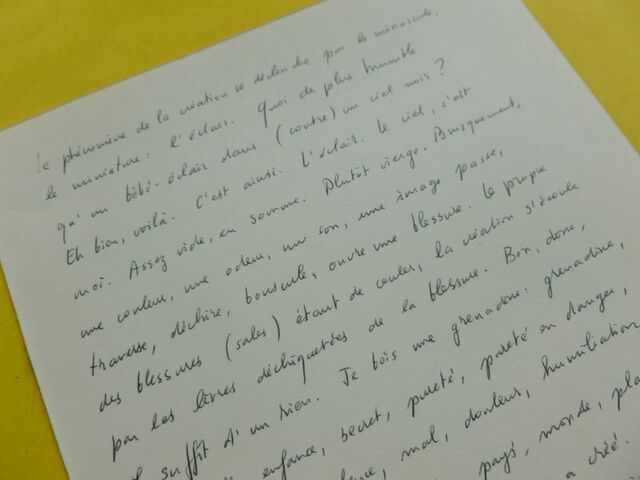 Le phénomène de la création se déclenche par le minuscule,
la miniature : l'éclair. Quoi de plus humble
qu'un bébé-éclair dans (contre) un ciel noir ?
Eh bien, voilà. C'est ainsi. L'éclair. Le ciel, c'est
moi. Assez vide, en somme. Plutôt vierge. Brusquement,
une couleur, une odeur, un son, une image passe,
traverse, déchire, bouscule, ouvre une blessure. Le propre
des blessures (sales) étant de couler, la création s'écoule
par les lèvres déchiquetées de la blessure. Bon, donc,
il suffit d'un rien. Je bois une grenadine : grenadine,
enfance, secret, pureté, pureté en danger,
mal, douleur, humiliation
pays, monde, pla
a créé.